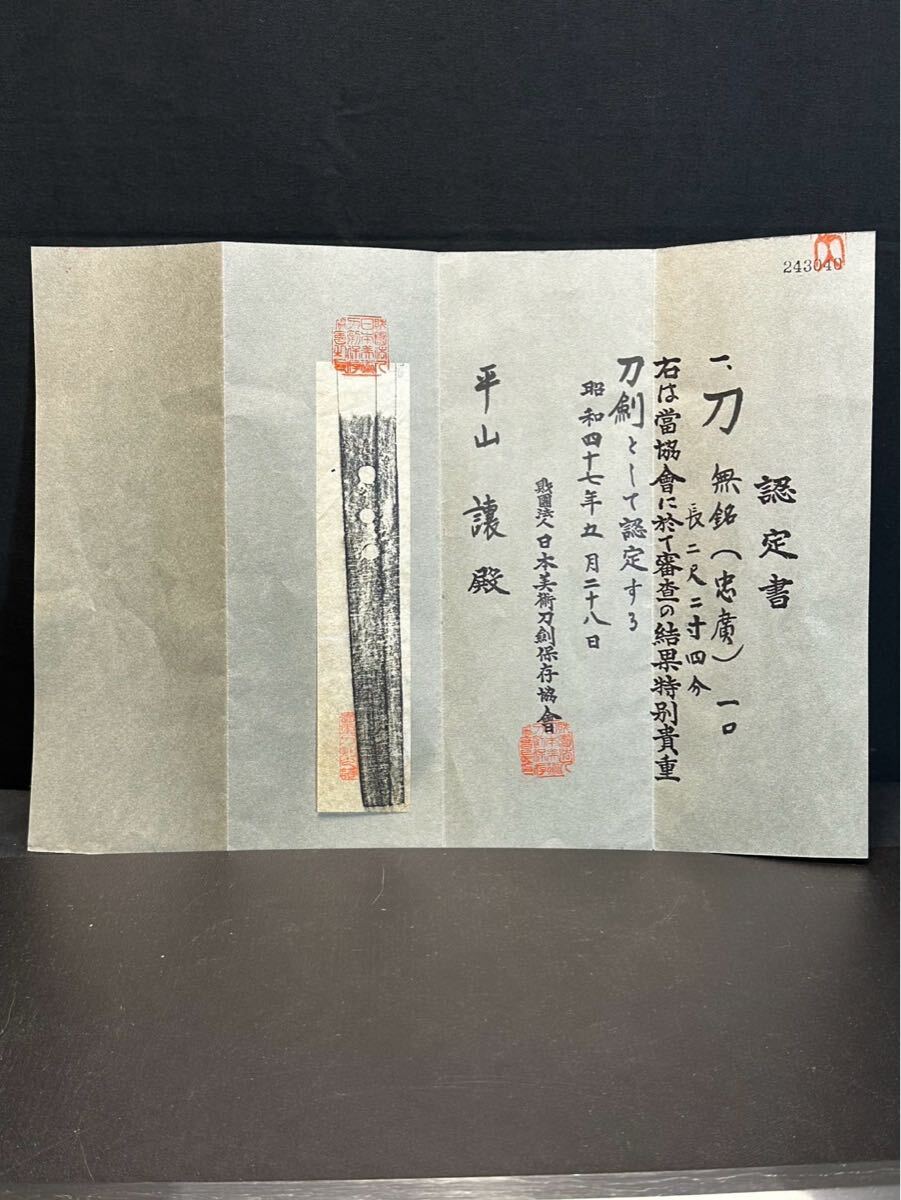 243040
認定書
一、刀 無銘(忠廣) 一口
長二尺二寸四分
右は當協會に於て審査の結果特別貴重
刀劍として認定する
昭和四十七年五月二十八日
財團法人日本美術刀劍保存協會
平山 讓殿